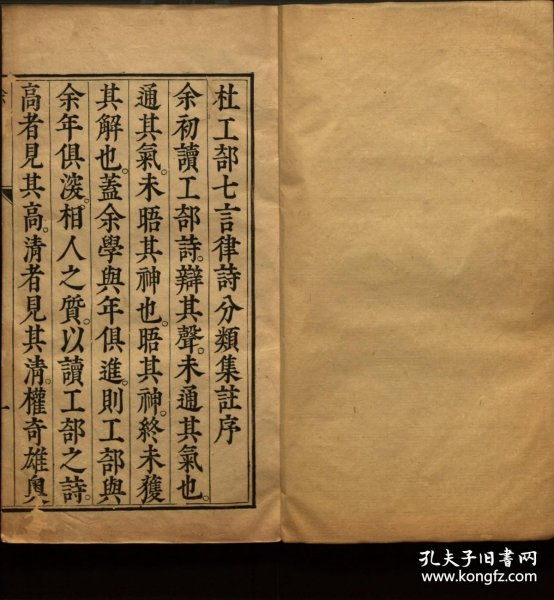 杜工部七言律詩分類集註序
余初讀工部詩。辯其聲。未通其氣也。
通其氣。未晤其神也。晤其神。終未獲
其解也。蓋余學與年俱進。則工部與
余年俱深。相人之質。以讀工部之詩。
高者見其高。清者見其清。權奇雄奧
孔夫子旧书网
www.kongfz.com